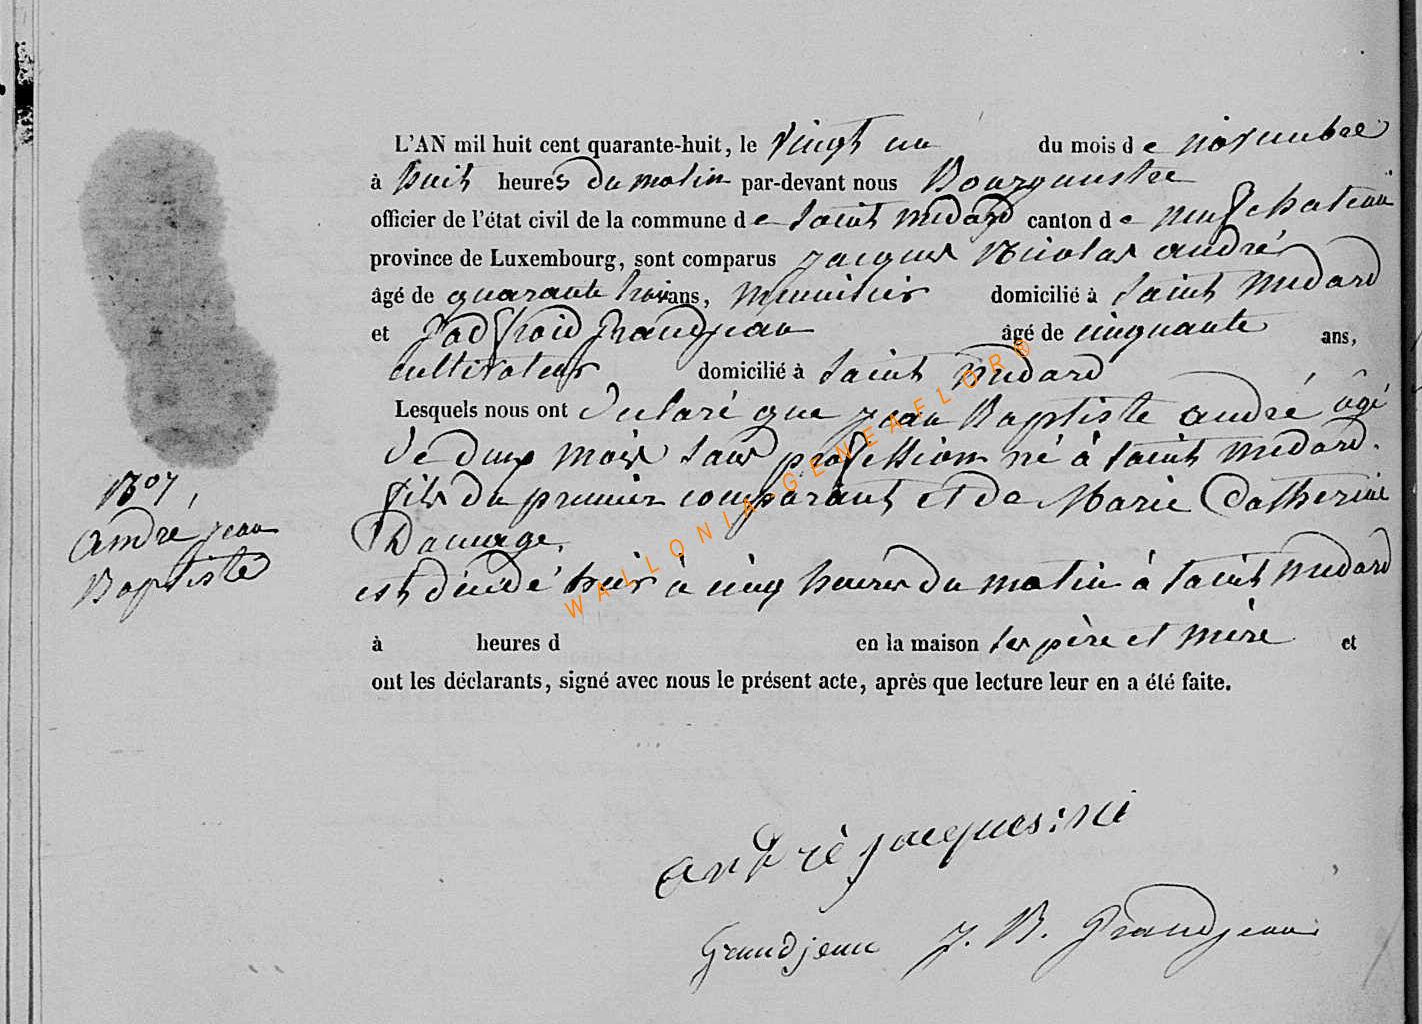 L'AN mil huit cent quarante-huit, le vingt un du mois de novembre
à huit heures du matin par-devant nous Bourgmestre
officier de l'état civil de la commune de Saint Médard canton de Neufchateau
province de Luxembourg, sont comparus Jacques Nicolas André
âgé de quarante trois ans, menuisier domicilié à Saint Médard
et Godfroid Grandjean âgé de cinquante ans,
cultivateur domicilié à Saint Médard
Lesquels nous ont déclaré que Jean Baptiste André âgé
de deux mois sans profession né à Saint Médard.
fils du premier comparant et de Marie Catherine
est décédé hier à cinq heures du matin à Saint Médard
à heures d en la maison ses père et mère et
ont les déclarants, signé avec nous le présent acte, après que lecture leur en a été faite.
André Jean
Baptiste
andré jacques: ni
Grandjean J. B. Grandjean
WALLONIA-GENEAFLOR®